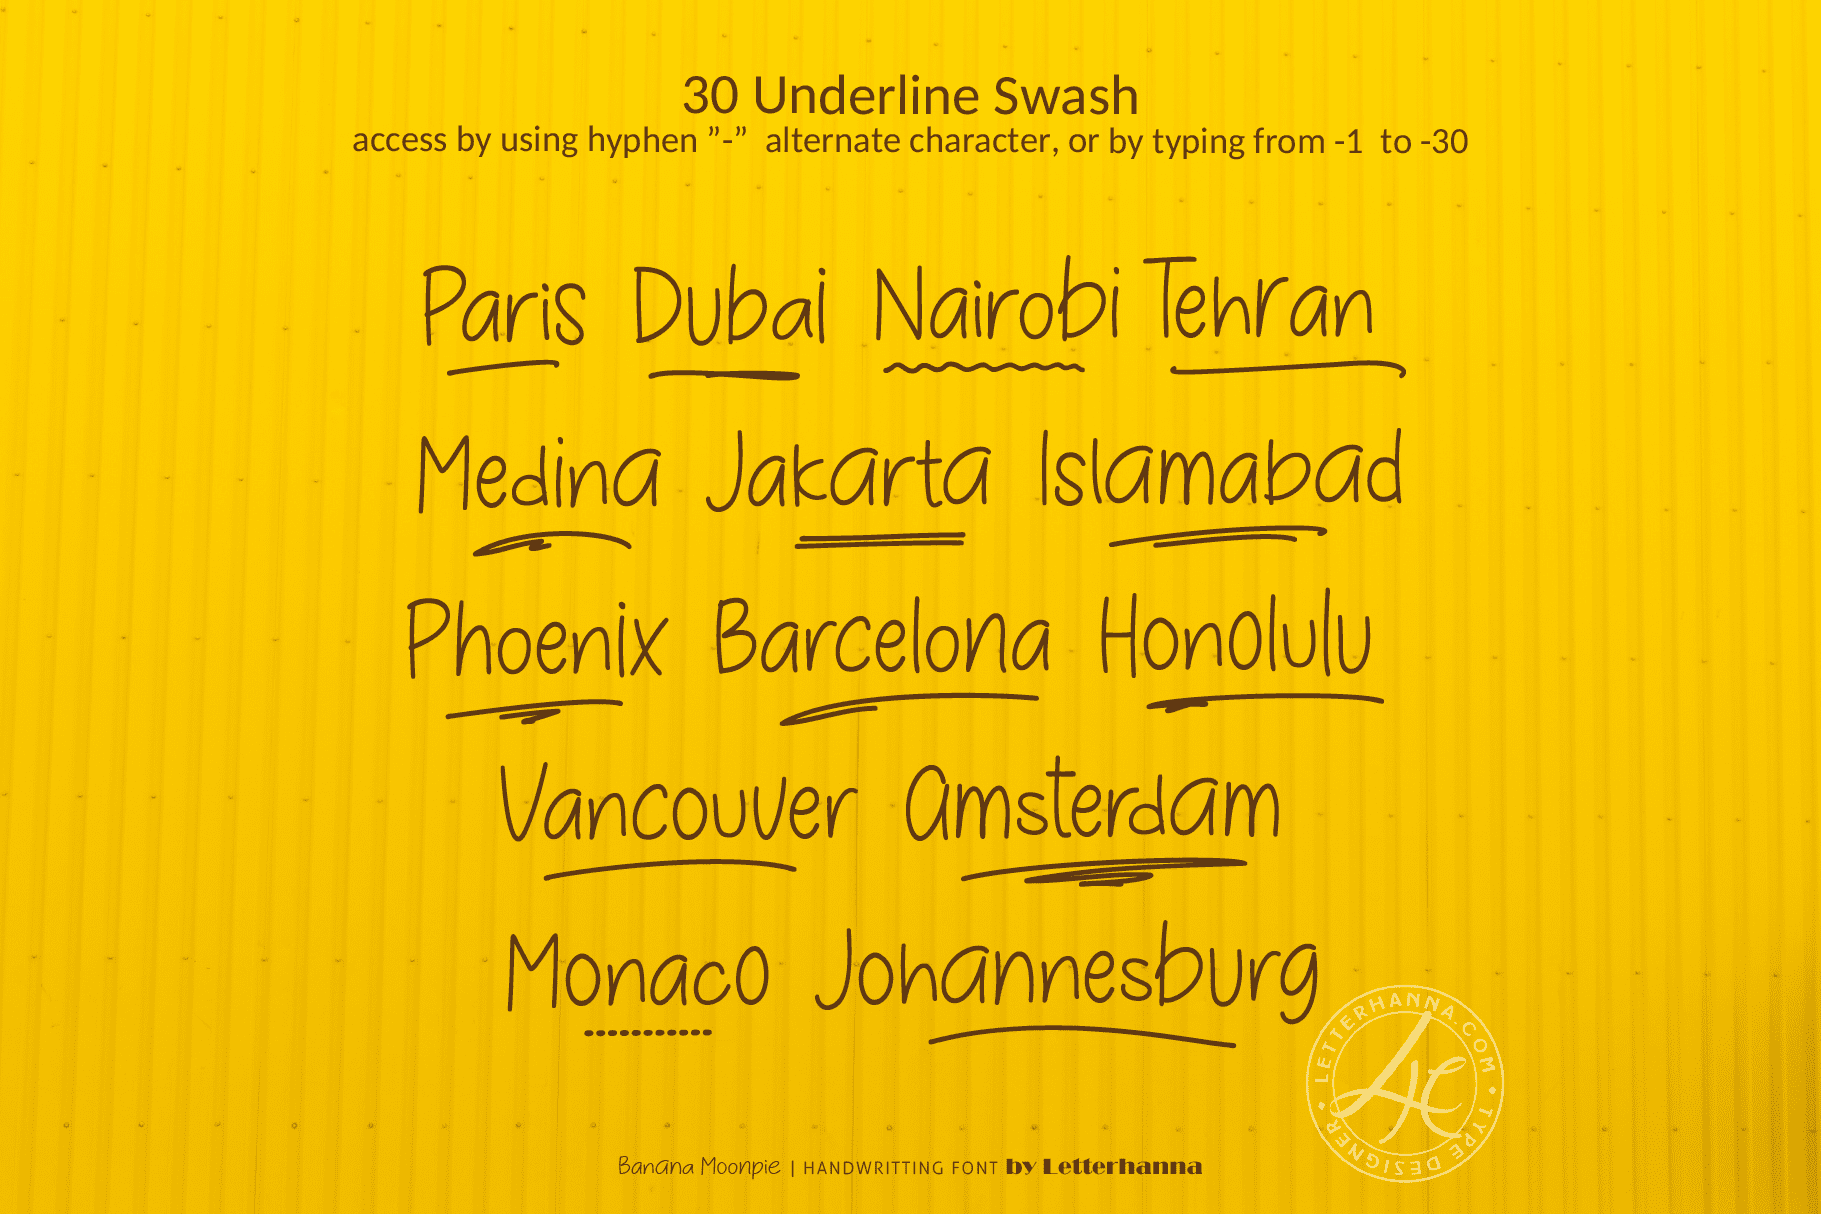 30 Underline Swash
access by using hyphen ”-” alternate character, or by typing from -1 to -30
Paris Dubai Nairobi Tehran
Medina Jakarta Islamabad
Phoenix Barcelona Honolulu
Vancouver Amsterdam
Monaco Johannesburg
LETTERHANNA.COM • TYPE DESIGNER •
LH
Banana Moonpie | HANDWRITTING FONT by Letterhanna